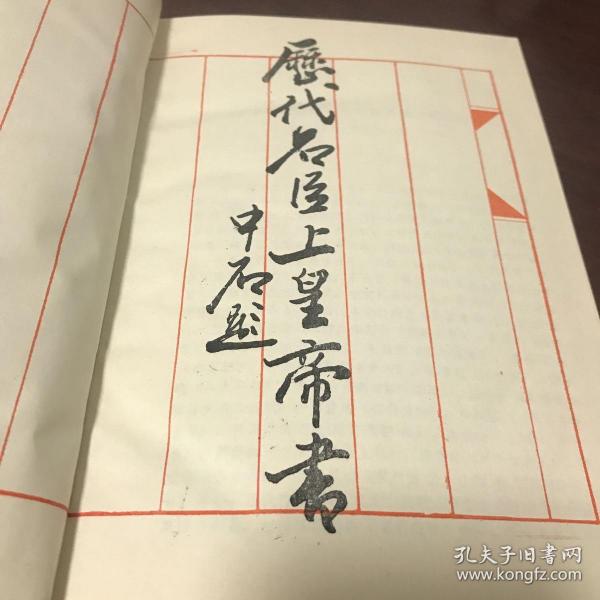 歷代名臣上皇帝書
中石題
孔夫子旧書网
www.kongfz.com